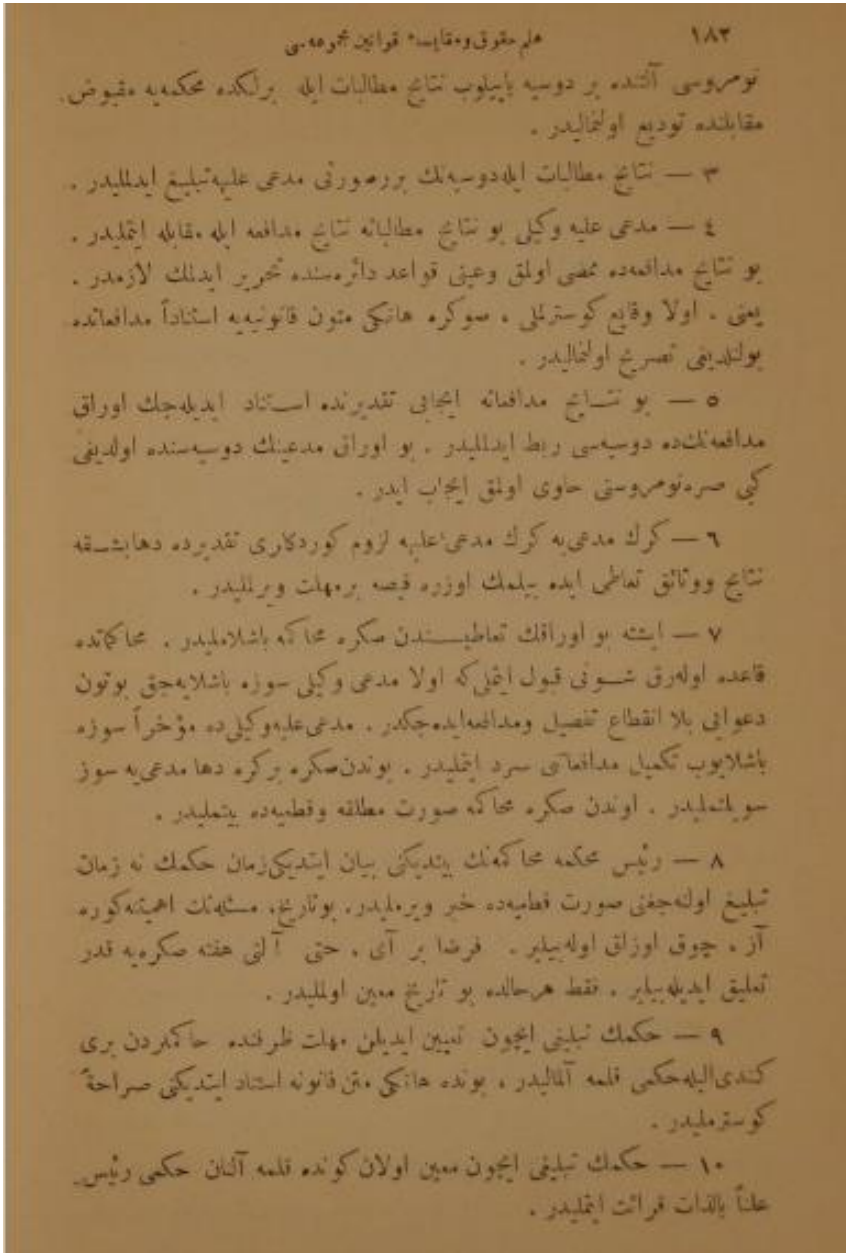 ١٨٢ علم حقوق ومقايسهٔ قوانين مجموعه‌سى
نومروسى آلتنده بر دوسيه ياپيلوب نتايج مطالبات ايله برلكده محكمه‌يه مقبوض
مقابلنده توديع اولنماليدر .
٣ — نتايج مطالبات ايله‌دوسيه‌نك بررصورتى مدعى عليهه‌تبليغ ايدلمليدر .
٤ — مدعى عليه وكيلى بو نتايج مطالباته نتايج مدافعه ايله مقابله ايتمليدر .
بو نتايج مدافعه‌ده ممضى اولمق وعينى قواعد دائره‌سنده تحرير ايدلمك لازمدر .
يعنى ، اولا وقايع كوسترلملى ، صوكره هانكى متون قانونيه‌يه استناداً مدافعاتده
بولنلديغى تصريح اولنماليدر .
٥ — بو نتــايج مدافعاته ايجابى تقديرنده اســتناد ايديله‌جك اوراق
مدافعه‌نك‌ده دوسيه‌سى ربط ايدلمليدر . بو اوراق مدعينك دوسيه‌سنده اولديغى
كبى صره‌نومروسنى حاوى اولمق ايجاب ايدر .
٦ — كرك مدعى‌يه كرك مدعى‌عليهه لزوم كوردكلرى تقديرده دهابشــقه
نتايج ووثائق تعاطى ايده بيلمك اوزره قيصه برمهلت ويرلمليدر .
٧ — ايشته بو اوراقك تعاطيـــندن صكره محاكمه باشلامليدر . محاكماتده
قاعده اوله‌رق شــونى قبول ايتملى‌كه اولا مدعى وكيلى سوزه باشلايه‌جق بوتون
دعوايى بلا انقطاع تفصيل ومدافعه‌ايده‌جكدر . مدعى‌عليه‌وكيلى‌ده مؤخراً سوزه
باشلايوب تكميل مدافعاتنى سرد ايتمليدر . بوندن‌صكره بركره دها مدعى‌يه سوز
سويلتمليدر . اوندن صكره محاكمه صورت مطلقه وقطعيه‌ده بيتمليدر .
٨ — رئيس محكمه محاكمه‌نك بيتديكنى بيان ايتديكى‌زمان حكمك نه زمان
تبليغ اولنه‌جغنى صورت قطعيه‌ده خبر ويرمليدر. بوتاريخ، مسئله‌نك اهميتنه‌كوره
آز ، چوق اوزاق اوله‌بيلير . فرضا بر آى ، حتى آلتى هفته صكره‌يه قدر
تعليق ايديله‌بيلير . فقط هرحالده بو تاريخ معين اولمليدر .
٩ — حكمك تبليغى ايچون تعيين ايديلن مهلت ظرفنده حاكملردن برى
كندى‌اليله‌حكمى قلمه آلماليدر ، بونده هانكى متن قانونه استناد ايتديكنى صراحةً
كوسترمليدر .
١٠ — حكمك تبليغى ايچون معين اولان كونده قلمه آلنان حكمى رئيس
علناً بالذات قرائت ايتمليدر .